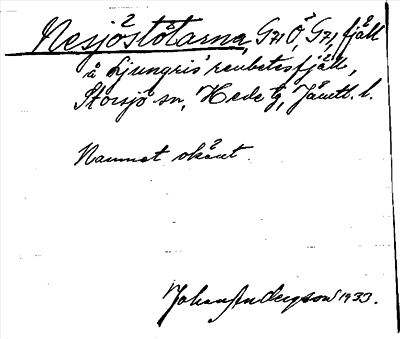 Nesjöstötarna, G21 Ö, G21, fjäll
å Ljungris renbetesfjäll,
Storsjö sn, Hede tg, Jämtl. l.
Namnet okänt.
Johan Andersson 1933.